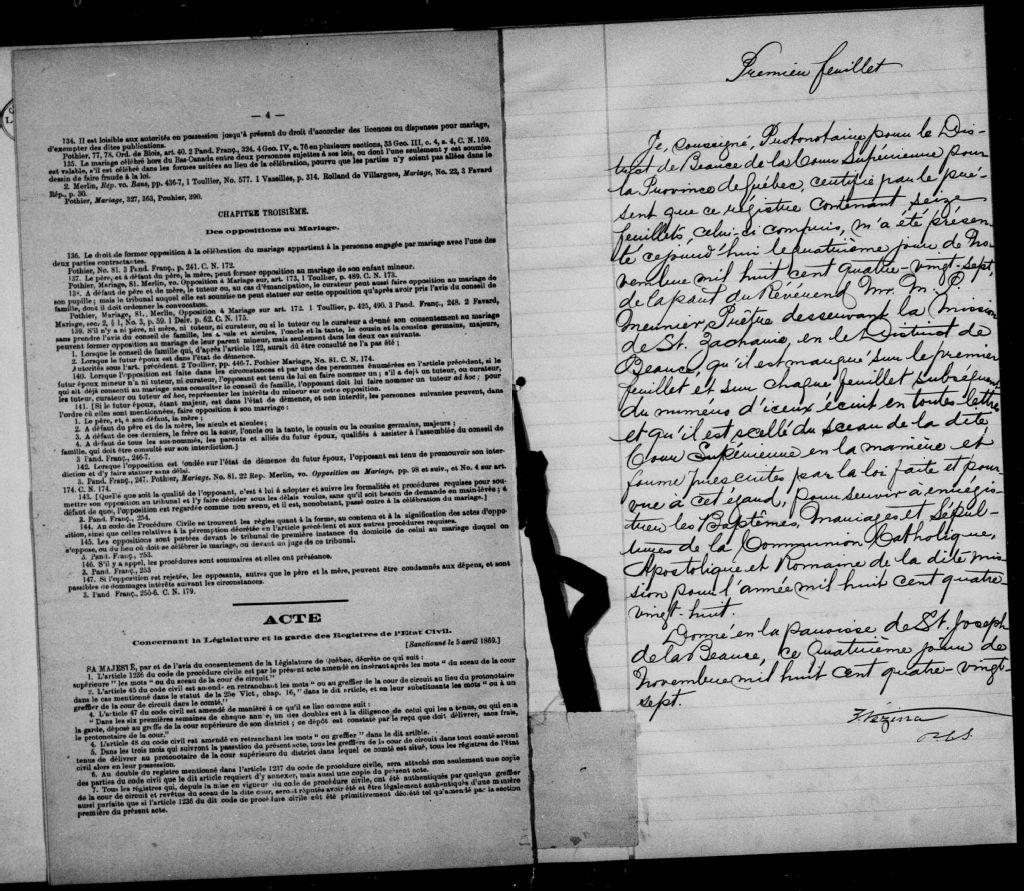 — 4 —
134. Il est loisible aux autorités en possession jusqu'à présent du droit d'accorder des licences ou dispenses pour mariage,
d'exempter des dites publications.
Pothier, 77, 78. Ord. de Blois, art. 40. 2 Pand. Franç., 324. 4 Geo. IV, c. 76 en plusieurs sections, 35 Geo. III, c. 4, s. 4, C. N. 169.
135. Le mariage célébré hors du Bas-Canada entre deux personnes sujettes à ses lois, ou dont l'une seulement y est soumise
est valable, s'il est célébré dans les formes usitées au lieu de la célébration, pourvu que les parties n'y soient pas allées dans le
dessin de faire fraude à la loi.
2. Merlin, Rép. vo. Bans, pp. 436-7, 1 Toullier, No. 577. 1 Vazeilles, p. 314. Rolland de Villargues, Mariage, No. 22, 3 Favard
Rép., p. 30.
Pothier, Mariage, 327, 363, Pouhier, 390.
CHAPITRE TROISIÈME.
Des oppositions au Mariage.
136. Le droit de former opposition à la célébration du mariage appartient à la personne engagée par mariage avec l'une des
deux parties contractantes.
Pothier, No. 81. 3 Pand. Franç., p. 241. C. N. 172.
137. Le père, et à défaut du père, la mère, peut former opposition au mariage de son enfant mineur.
Pothier, Mariage, 81. Merlin, vo. Opposition à Mariage sur art. 173, 1 Toullier, p. 489. C. N. 173.
13°. A défaut de père et de mère, le tuteur ou, au cas d'émancipation, le curateur peut aussi faire opposition au mariage de
son pupille; mais le tribunal auquel elle est soumise ne peut statuer sur cette opposition qu'après avoir pris l'avis du conseil de
famille, dont il doit ordonner la convocation.
Pothier, Mariage, 81. Merlin, Opposition à Mariage sur art. 172. 1 Toullier, p. 425, 490. 3 Pand. Franç., 248. 2 Favard,
Mariage, sec. 2, § 1, No. 3, p. 59. 1 Delv. p. 62. C. N. 175.
139. S'il n'y a ni père, ni mère, ni tuteur, ni curateur, ou si le tuteur ou le curateur a donné son consentement au mariage
sans prendre l'avis du conseil de famille, les aïeuls et aïeules, l'oncle et la tante, le cousin et la cousine germains, majeurs,
peuvent former opposition au mariage de leur parent mineur, mais seulement dans les deux cas suivants.
1. Lorsque le conseil de famille qui, d'après l'article 122, aurait dû être consulté ne l'a pas été;
2. Lorsque le futur époux est dans l'état de démence.
Autorités sous l'art. précédent. 2 Toullier, pp. 446-7. Pothier Mariage, No. 81. C. N. 174.
140. Lorsque l'opposition est faite dans les circonstances et par une des personnes énumérées en l'article précédent, si le
futur époux mineur n'a ni tuteur, ni curateur, l'opposant est tenu de lui en faire nommer un; s'il a déjà un tuteur, ou curateur,
qui ait déjà consenti au mariage sans consulter le conseil de famille, l'opposant doit lui faire nommer un tuteur ad hoc; pour
les tuteur, curateur ou tuteur ad hoc, représenter les intérêts du mineur sur cette opposition.
141. [Si le futur époux, étant majeur, est dans l'état de démence, et non interdit, les personnes suivantes peuvent, dans
l'ordre où elles sont mentionnées, faire opposition à son mariage:
1. Le père, et, à son défaut, la mère;
2. A défaut du père et de la mère, les aïeuls et aïeules;
3. A défaut de ces derniers, le frère ou la sœur, l'oncle ou la tante, le cousin ou la cousine germains, majeurs;
4. A défaut de tous les sus-nommés, les parents et alliés du futur époux, qualifiés à assister à l'assemblée du conseil de
famille, qui doit être consulté sur son interdiction.]
3 Pand. Franç., 246-7.
142. Lorsque l'opposition est fondée sur l'état de démence du futur époux, l'opposant est tenu de promouvoir son inter-
diction et d'y faire statuer sans délai.
3. Pand. Franç., 247. Pothier, Mariage, No. 81. 22 Rep. Merlin, vo. Opposition au Mariage, pp. 98 et suiv., et No. 4 sur art.
174. C. N. 174.
143. [Quelle que soit la qualité de l'opposant, c'est à lui à adopter et suivre les formalités et procédures requises pour sou-
mettre son opposition au tribunal et l'y faire décider sous les délais voulus, sans qu'il soit besoin de demande en main-levée; à
défaut de quoi, l'opposition est regardée comme non avenu, et il est, nonobstant, passé outre à la célébration du mariage.]
3. Pand. Franç., 254.
144. Au code de Procédure Civile se trouvent les règles quant à la forme, au contenu et à la signification des actes d'oppo-
sition, ainsi que celles relatives à la péremption décrétée en l'article précédent et aux autres procédures requises.
145. Les oppositions sont portées devant le tribunal de première instance du domicile de celui au mariage duquel on
s'oppose, ou du lieu où doit se célébrer le mariage, ou devant un juge de ce tribunal.
3. Pand. Franç., 253.
146. S'il y a appel, les procédures sont sommaires et elles ont préséance.
3. Pand. Franç., 253
147. Si l'opposition est rejetée, les opposants, autres que le père et la mère, peuvent être condamnés aux dépens, et sont
passibles de dommages intérêts suivant les circonstances.
3. Pand. Franç., 255-6. C. N. 179.
ACTE
Concernant la Législature et la garde des Registres de l'Etat Civil.
[Sanctionné le 5 avril 1869.]
SA MAJESTÉ, par et de l'avis du consentement de la Législature de Québec, décrète ce qui suit:
1. L'article 1236 du code de procédure civile est par le présent acte amendé en insérant après les mots "du sceau de la cour
supérieure" les mots "ou du sceau de la cour de circuit."
2. L'article 45 du code civil est amendé en retranchant les mots "ou au greffier de la cour de circuit au lieu du protonotaire
dans le cas mentionné dans le statut de la 25e Vict, chap. 16," dans le dit article, et en leur substituant les mots "ou à un
greffier de la cour de circuit dans le comté."
4. L'article 47 du code civil est amendé de manière à ce qu'il se lise comme suit:
"Dans les six premières semaines de chaque année, un des doubles est à la diligence de celui qui les a tenus, ou qui en a
la garde, déposé au greffe de la cour supérieure de son district; ce dépôt est constaté par le reçu que doit délivrer, sans frais,
le protonotaire de la cour."
4. L'article 48 du code civil est amendé en retranchant les mots "ou greffier" dans le dit article.
5. Dans les trois mois qui suivront la passation du présent acte, tous les greffiers de la cour de circuit dans tout comté seront
tenus de délivrer au protonotaire de la cour supérieure du district dans lequel ce comté est situé, tous les registres de l'état
civil alors en leur possession.
6. Au double du registre mentionné dans l'article 1237 du code de procédure civile, sera attaché non seulement une copie
des parties du code civil que le dit article requiert d'y annexer, mais aussi une copie du présent acte.
7. Tous les registres qui, depuis la mise en vigueur du code de procédure civile, ont été authentiqués par quelque greffier
de la cour de circuit et revêtus du sceau de la dite cour, seront réputés avoir été et être légalement authentiqués d'une manière
aussi parfaite que si l'article 1236 du dit code de procédure civile eût été primitivement décrété tel qu'amendé par la section
première du présent acte.
Premier feuillet
Je, soussigné, Protonotaire pour le Dis-
trict de Beauce de la Cour Supérieure pour
la Province de Québec, certifie par le pré-
sent que ce régistre contenant seize
feuillets, celui-ci compris, m'a été présen-
té cejourd'hui le quatrième jour de No-
vembre mil huit cent quatre-vingt-sept
de la part du Révérend Mr. M. O.
Meunier, Prêtre desservant la Mission
de St. Zacharie, en le District de
Beauce, qu'il est marqué sur le premier
feuillet et sur chaque feuillet subséquent
du numéro d'iceux écrit en toutes lettres
et qu'il est scellé du sceau de la dite
Cour Supérieure en la manière et
forme prescrites par la loi faite et pour
vue à cet égard, pour servir à enrégis-
trer les Baptêmes, Mariages et Sépul-
tures de la Communion Catholique,
Apostolique et Romaine de la dite mis-
sion pour l'année mil huit cent quatre
vingt-huit
Donné en la paroisse de St. Joseph
de la Beauce, ce Quatrième jour de
Novembre mil huit cent quatre-vingt-
sept.
Vézina
P.C.S.